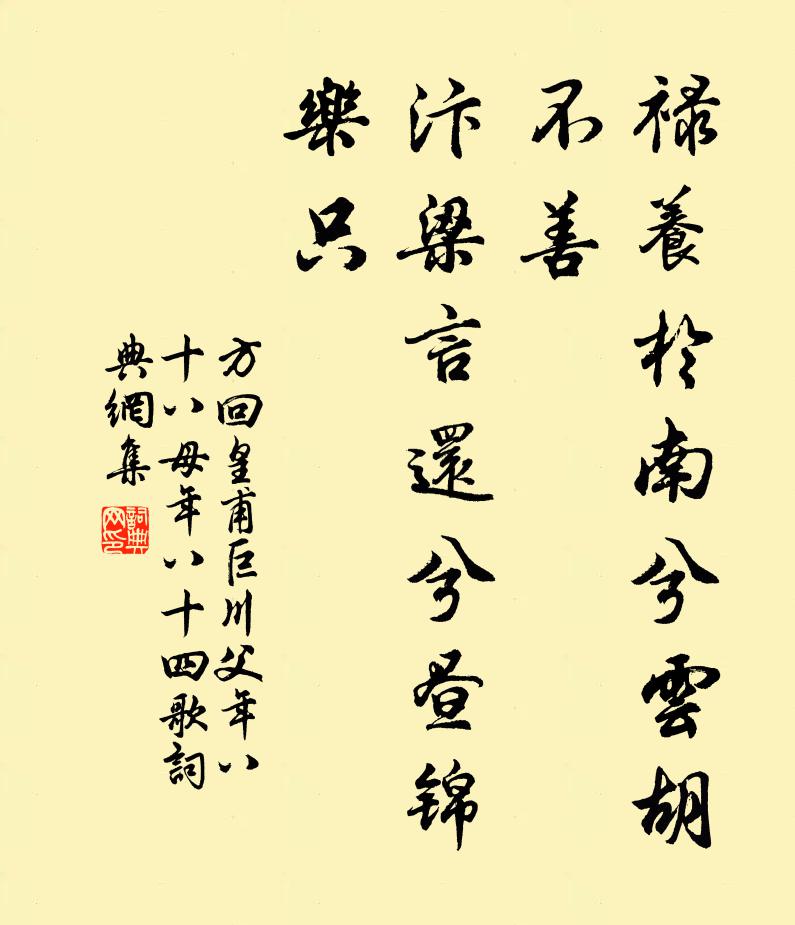 禄養於南兮雲胡
不善
汴梁言還兮昼錦
樂只
方回皇甫巨川父年八
十八母年八十四歌詞
典網集
詞典
网印